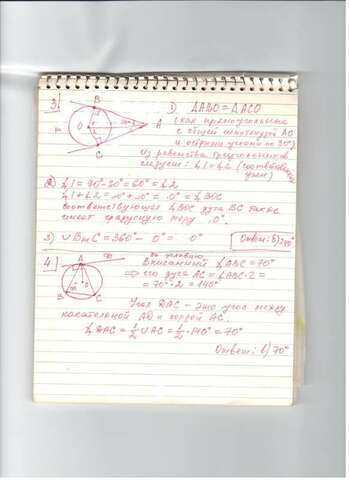 3.
B
O
A
C
1) ΔABO = ΔACO
(как прямоугольные
с общей гипотенузой AO
и острыми углами по 30°)
Из равенства треугольников
следует: ∠1 = ∠2
2) ∠1 = 90° - 30° = 60° = ∠2
∠1 + ∠2 = = ∠BOC
Соответствующая ∠BOC дуга BC также
имеет градусную меру 0°.
3) ∪BmC = 360° - 0° = 0°
Ответ: 240°
4.
A
B
C
по условию
Вписанный ∠ABC = 70°
⇒ его дуга AC = ∠ABC·2 =
= 70°·2 = 140°
Угол DAC - это угол между
касательной AD и хордой AC.
∠DAC = 1/2 ∪AC = 1/2 · 140° = 70°
Ответ: в) 70°